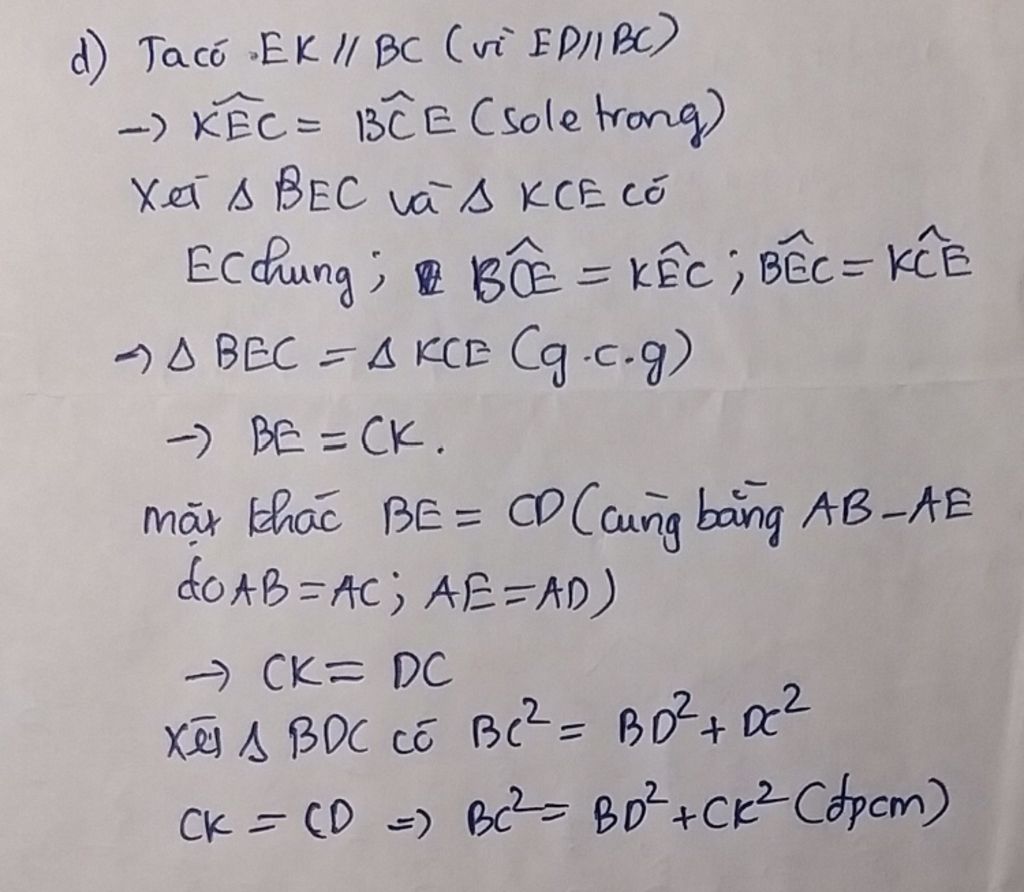 d) Ta có EK // BC (vì ED // BC)
→ KÊC = BĈE (sole trong)
Xét Δ BEC và Δ KCE có
EC chung; BĈE = KÊC; BÊC = KĈE
→ Δ BEC = Δ KCE (g.c.g)
→ BE = CK.
mặt khác BE = CD (cùng bằng AB - AE
do AB = AC; AE = AD)
→ CK = DC
Xét Δ BDC có BC² = BD² + DC²
CK = CD => BC² = BD² + CK² (đpcm)